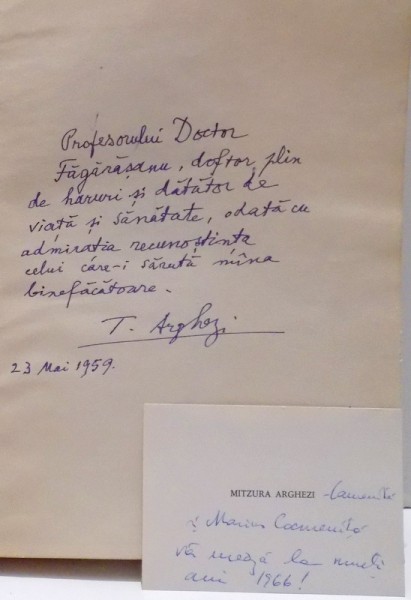 Profesorului Doctor
Făgărășanu, doftor, plin
de haruri și dătător de
viață și sănătate, odată cu
admirația recunoștința
celui care-i sărută mîna
binefăcătoare.
T. Arghezi
23 Mai 1959.
MITZURA ARGHEZI
și Marius
vă urează la mulți
ani 1966!